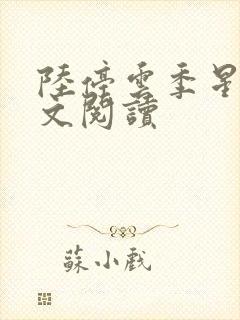 陸停雲季星
文閱讀
蘇小戲